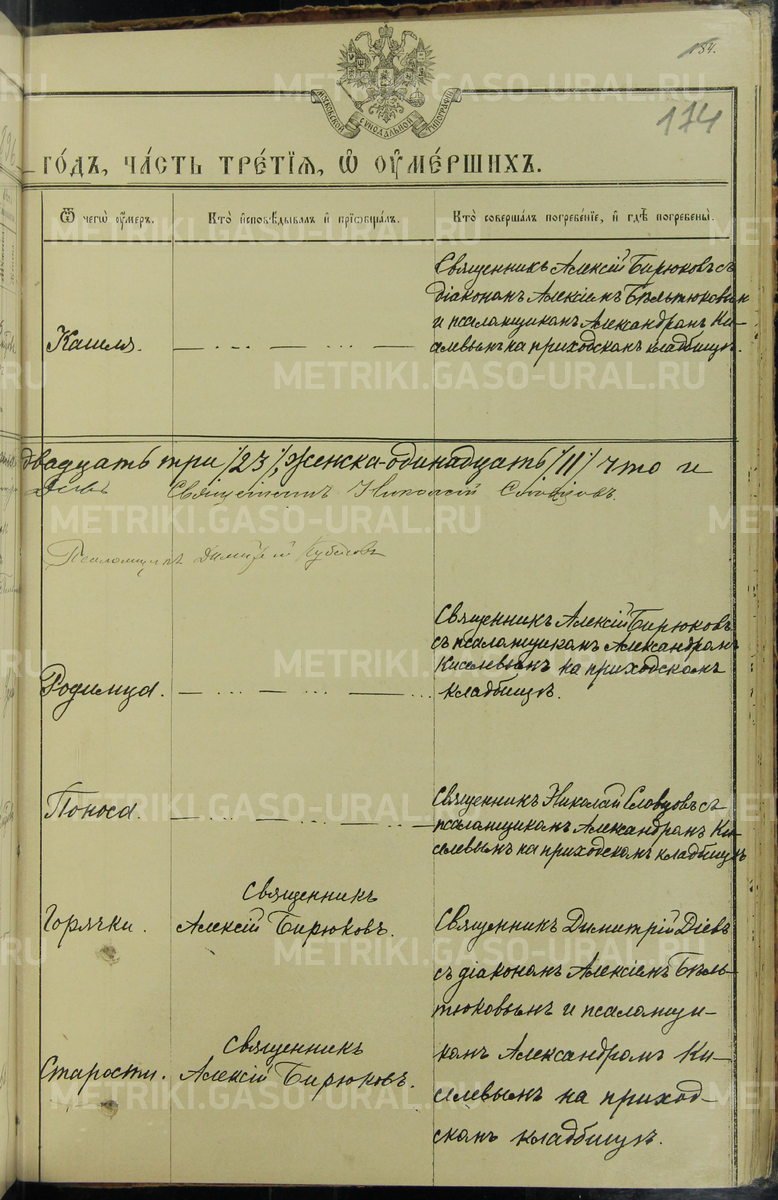 184.
174
МОСКОВСКОЙ СИНОДАЛЬНОЙ ТИПОГРАФІИ
ГО́ДЪ, ЧА́СТЬ ТРЕ́ТІЯ, Ѡ҆ ОУ҆МЕ́РШИХЪ.
Ѿ чегѡ̀ оу҆́меръ.
Кто̀ и҆сповѣ́дывалъ и҆ прїѡбща́лъ.
Кто̀ соверша́лъ погребе́нїе, и҆ гдѣ̀ погребены̀.
Кашля.
Священникъ Алексій Бирюковъ съ
діакономъ Алексіемъ Бѣльтюковымъ
и псаломщикомъ Александромъ Ки-
селевымъ на приходскомъ кладбищѣ.
двадцать три /23/, женска-одинадцать /11/ что и
Священникъ Николай Словцовъ.
Псаломщикъ Димитрій
Родимца.
Священникъ Алексій Бирюковъ
съ псаломщикомъ Александромъ
Киселевымъ на приходскомъ
кладбищѣ.
Поноса.
Священникъ Николай Словцовъ съ
псаломщикомъ Александромъ Ки-
селевымъ на приходскомъ кладбищѣ
Горячки.
Священникъ
Алексій Бирюковъ.
Священникъ Димитрій Діевъ
съ діакономъ Алексіемъ Бѣль-
тюковымъ и псаломщи-
комъ Александромъ Ки-
селевымъ на приход-
скомъ кладбищѣ.
Старости.
Священникъ
Алексій Бирюковъ.
METRIKI.GASO-URAL.RU